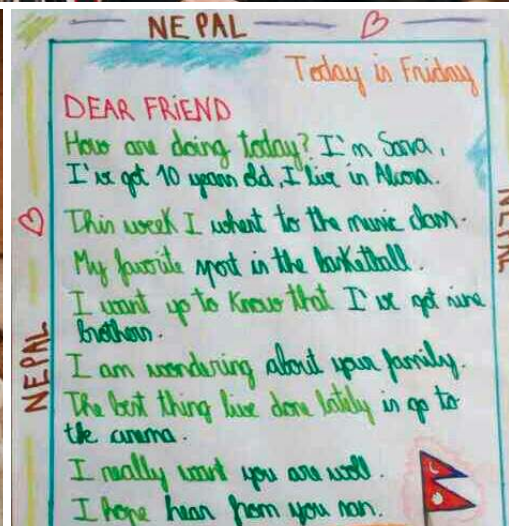 NEPAL
Today is Friday
DEAR FRIEND
How are doing today? I'm Sara,
I've got 10 years old, I live in Alcora.
This week I whent to the music class.
My favorite sport is the basketball.
I want up to know that I've got nine
brothers.
I am wondering about your family.
The best thing live done lately is go to
the cinema.
I really want you are well.
I hope hear from you
NEPAL
NEPAL